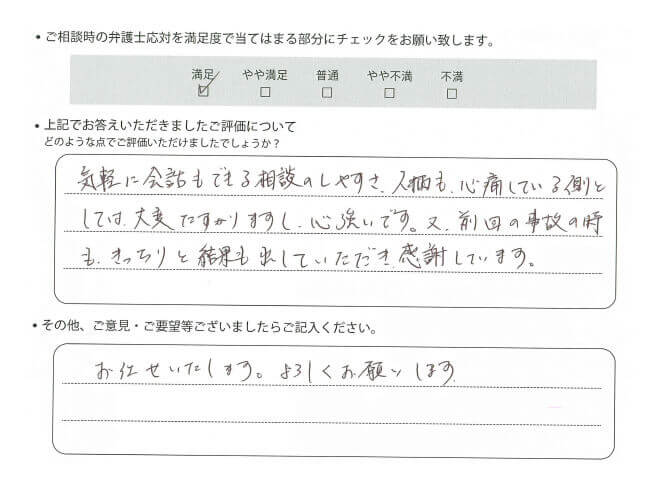 ・ご相談時の弁護士応対を満足度で当てはまる部分にチェックをお願い致します。
満足 やや満足 普通 やや不満 不満
☑ □ □ □ □
・上記でお答えいただきましたご評価について
どのような点でご評価いただけましたでしょうか？
気軽に会話もできる相談のしやすさ、人柄も、心痛している側と
しては、大変たすかりますし、心強いです。又、前回の事故の時
も、きっちりと結果も出していただき、感謝しています。
・その他、ご意見・ご要望等ございましたらご記入ください。
お任せいたします。よろしくお願いします